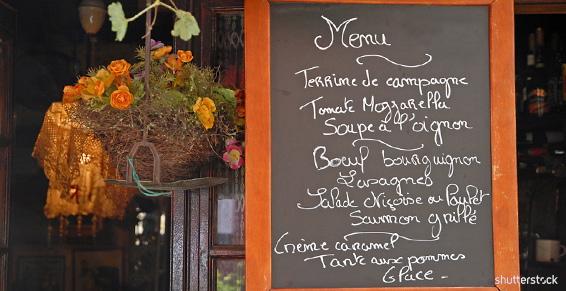 Menu
Terrine de campagne
Tomate Mozzarella
Soupe à l'oignon
Bœuf bourguignon
Lasagnes
Salade Niçoise ou Poulet
Saumon grillé
Crème caramel
Tarte aux pommes
Glace -
shutterstock